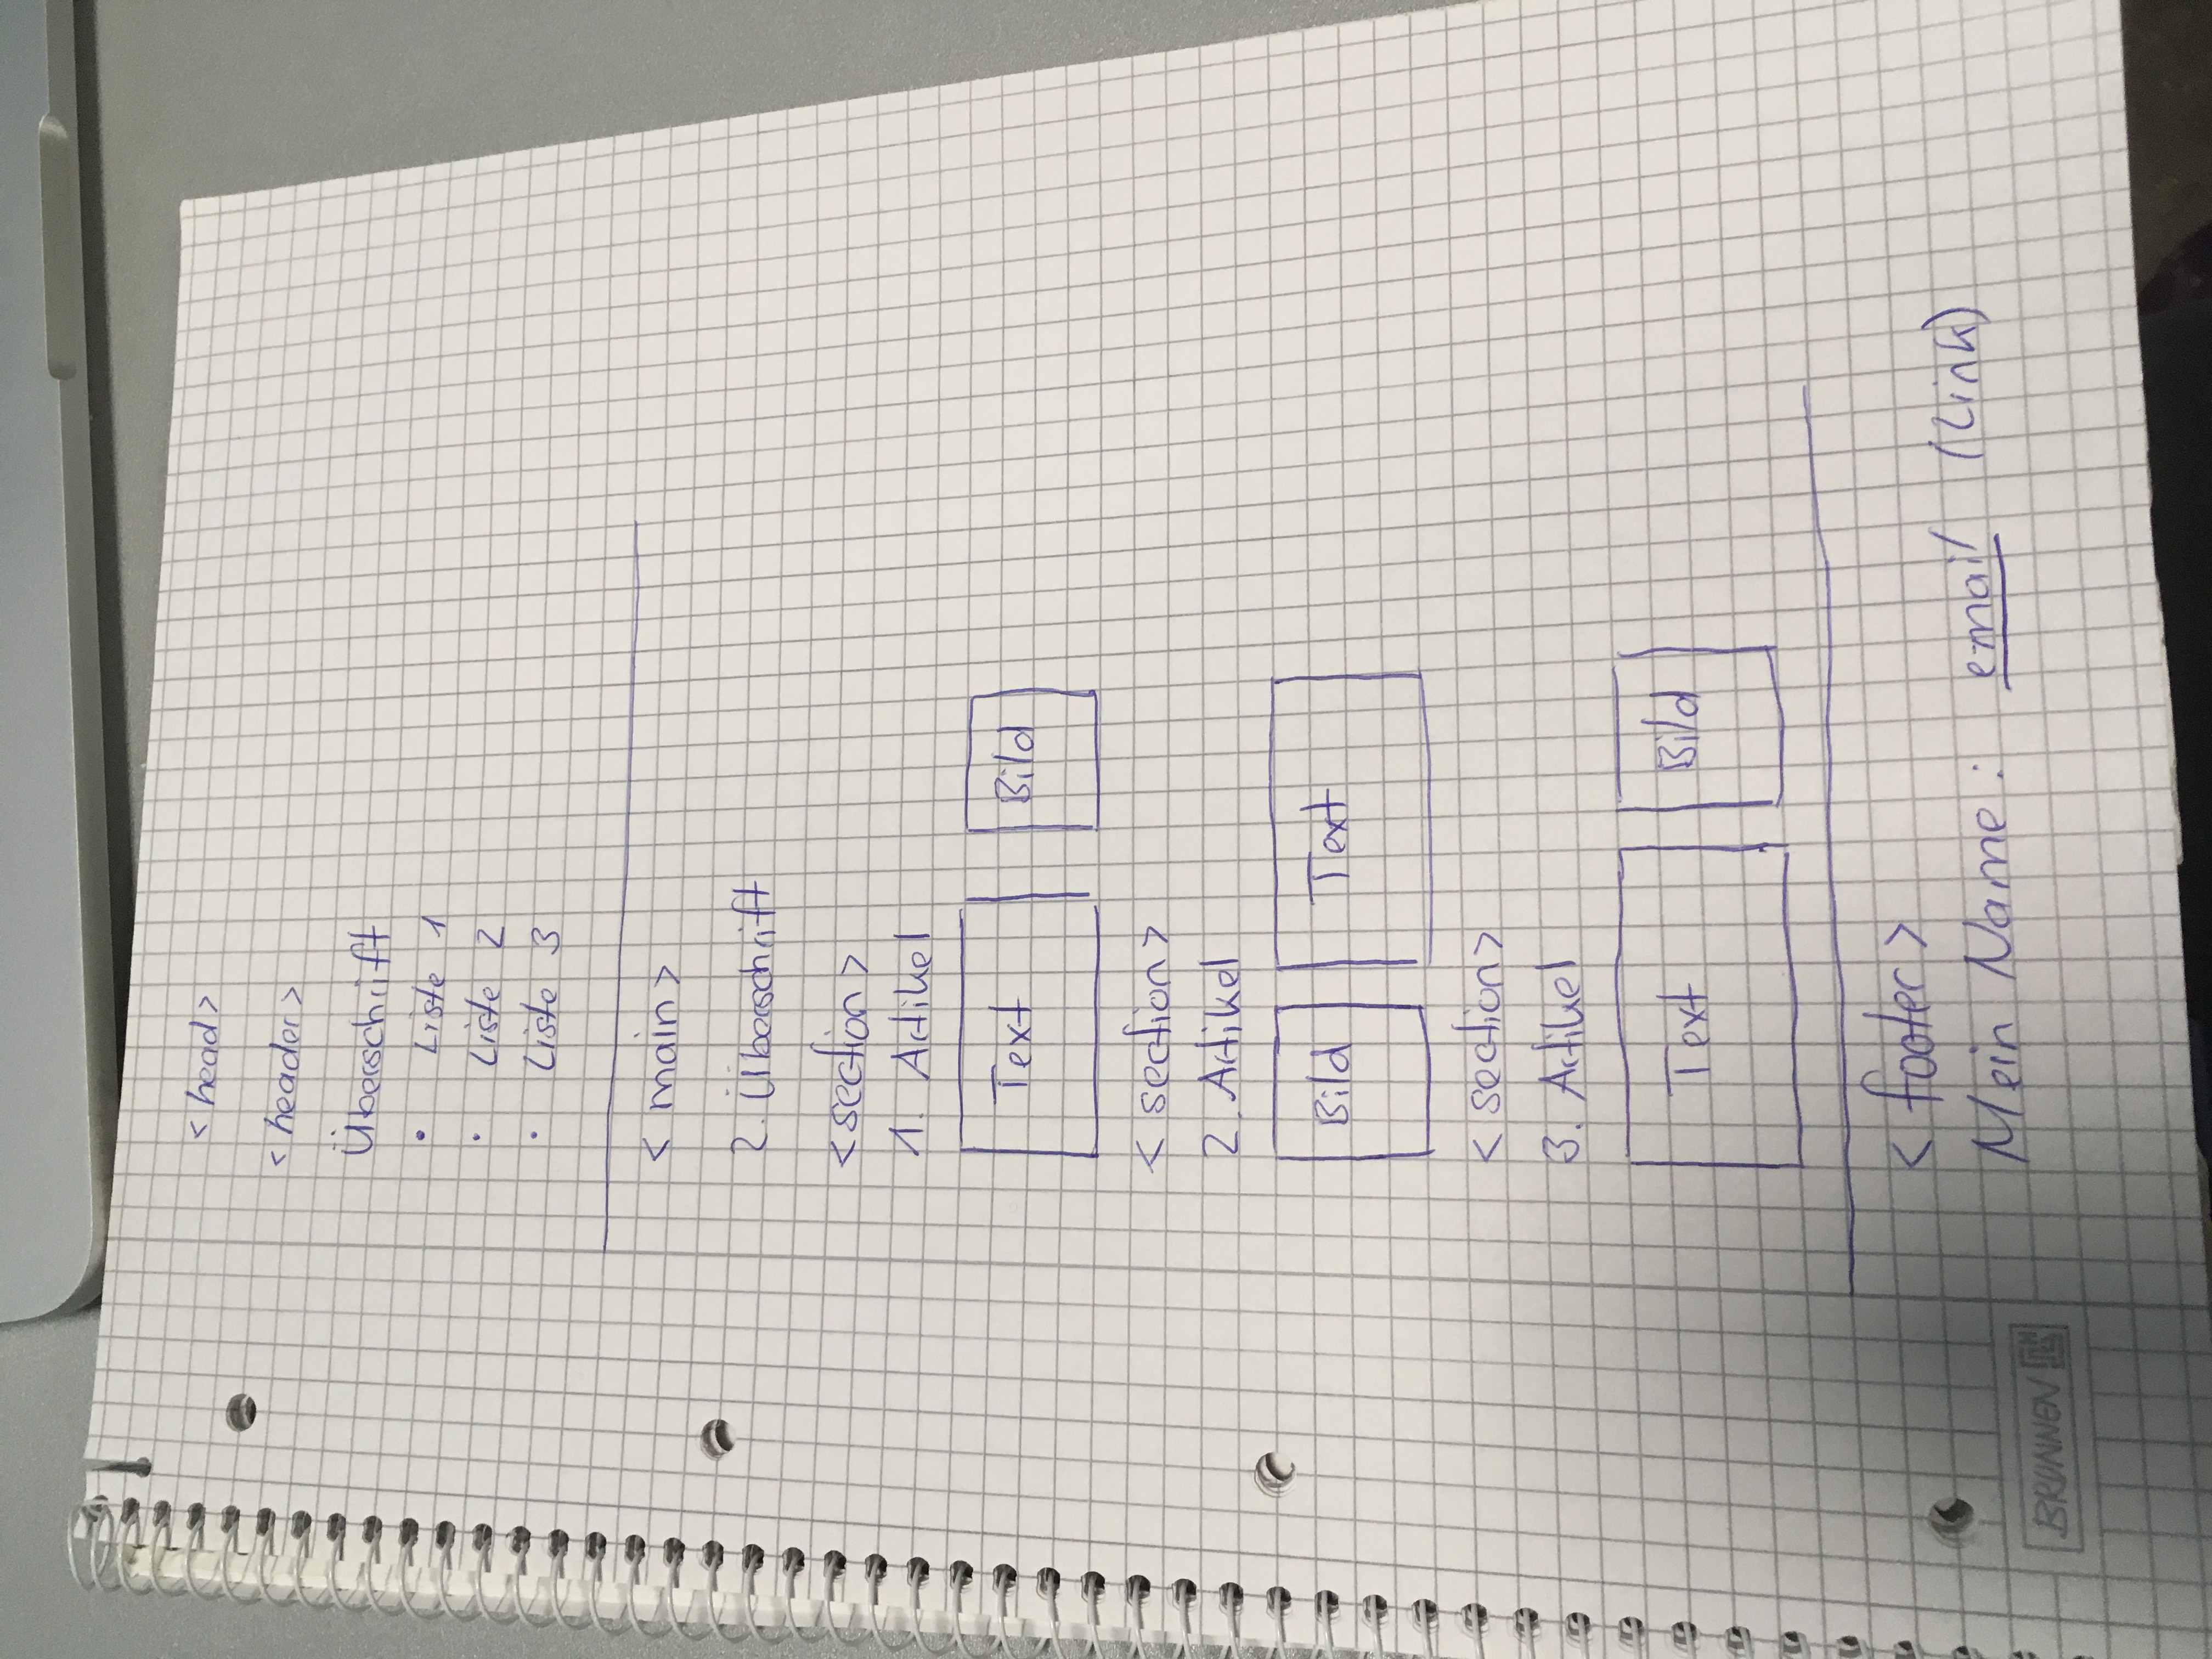 <head>
<header>
Überschrift
• Liste 1
• Liste 2
• Liste 3
<main>
2. Überschrift
<section>
1. Artikel
Text Bild
<section>
2. Artikel
Bild Text
<section>
3. Artikel
Text Bild
<footer>
Mein Name : email (Link)
BRUNNEN